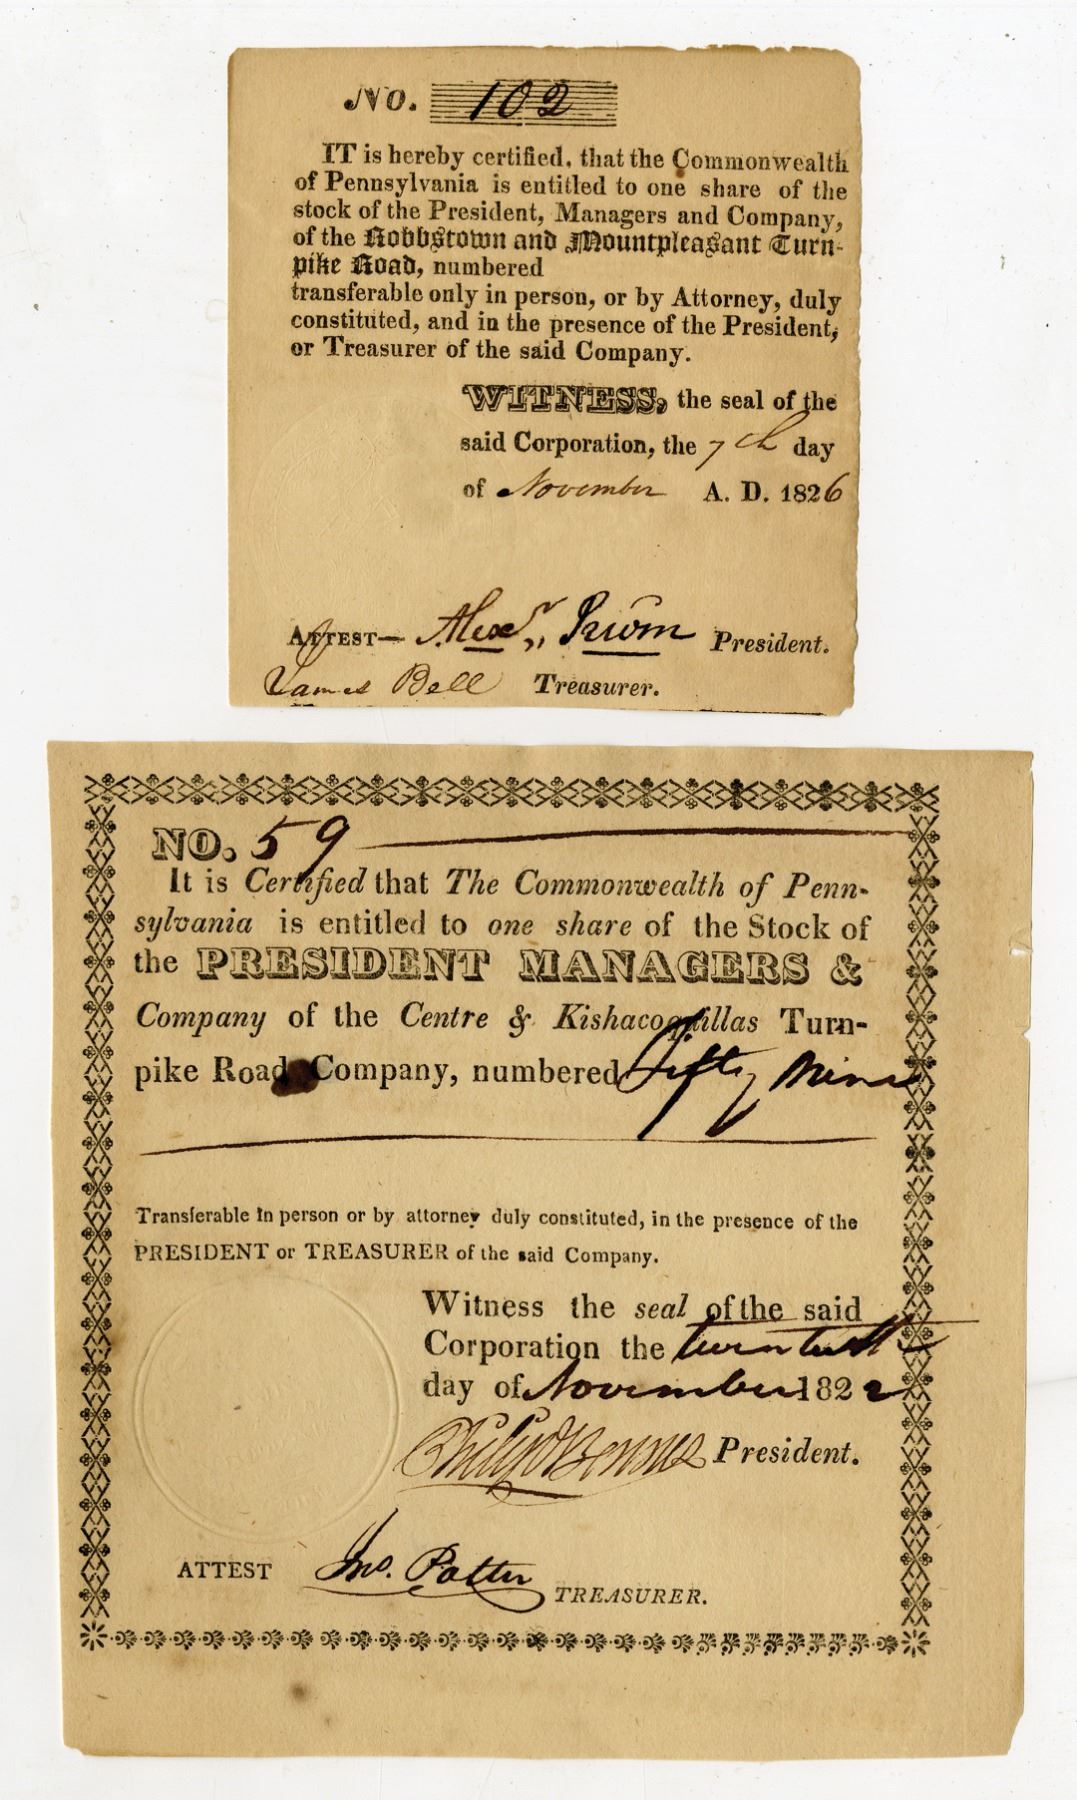 No. 102
IT is hereby certified, that the Commonwealth
of Pennsylvania is entitled to one share of the
stock of the President, Managers and Company,
of the Robbstown and Mountpleasant Turn-
pike Road, numbered
transferable only in person, or by Attorney, duly
constituted, and in the presence of the President,
or Treasurer of the said Company.
WITNESS, the seal of the
said Corporation, the 7th day
of November A. D. 1826
ATTEST— Alexr. President.
James Bell Treasurer.
NO. 59
It is Certified that The Commonwealth of Penn-
sylvania is entitled to one share of the Stock of
the PRESIDENT MANAGERS &
Company of the Centre & Kishacoquillas Turn-
pike Road Company, numbered Fifty Nine
Transferable In person or by attorney duly constituted, in the presence of the
PRESIDENT or TREASURER of the said Company.
Witness the seal of the said
Corporation the twentieth
day of November 1822
Philip Benner President.
ATTEST Jno. Potter TREASURER.